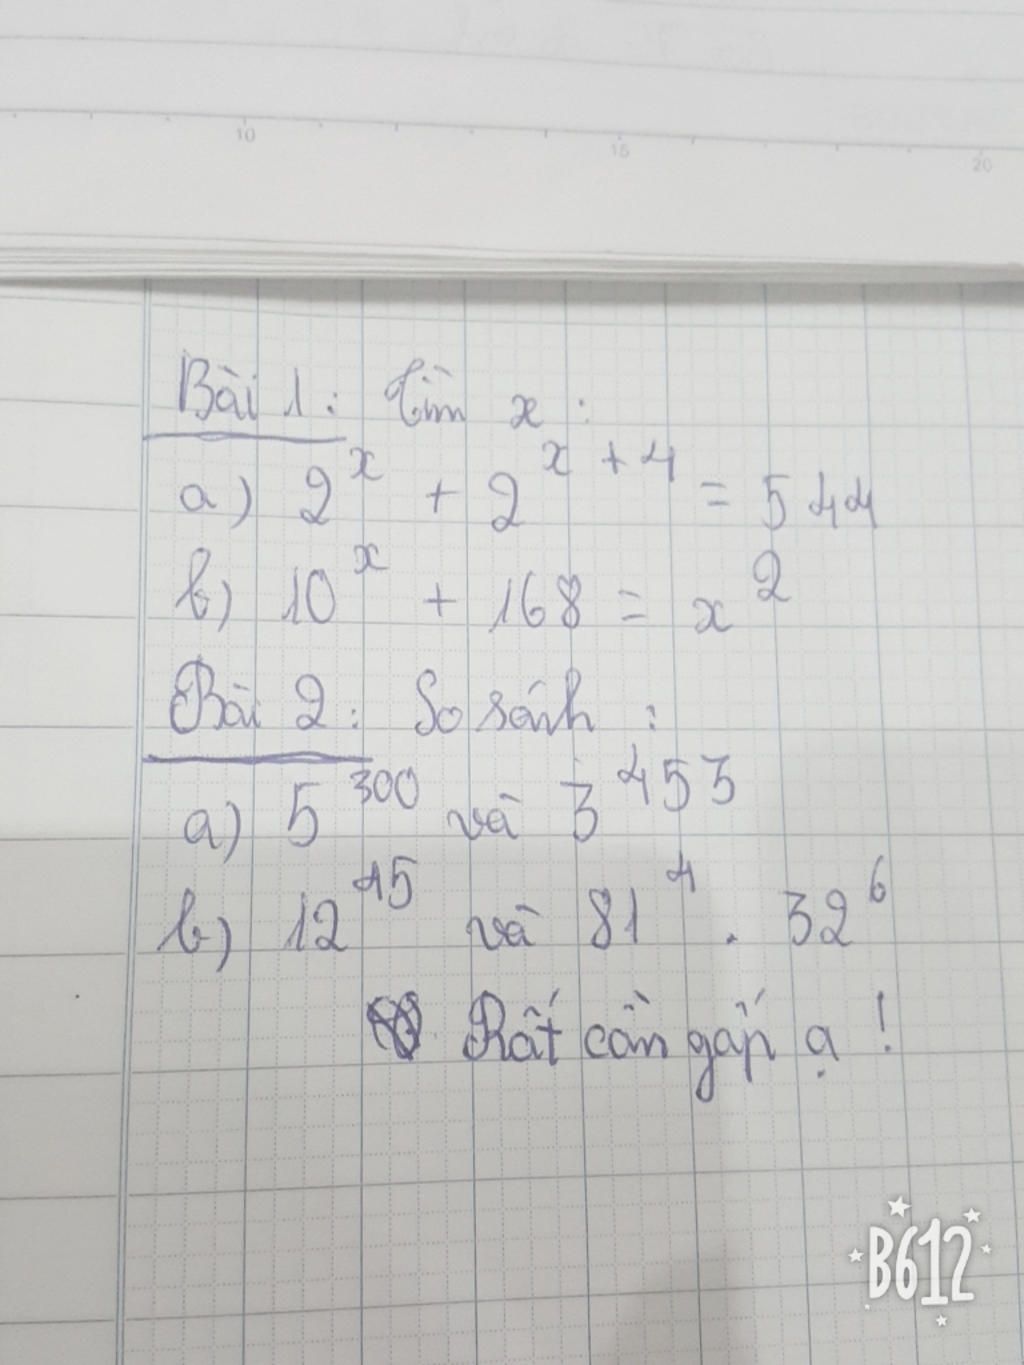 10 15 20
Bài 1: Tìm x:
a) 2^x + 2^{x+4} = 544
b) 10^x + 168 = x^2
Bài 2: So sánh:
a) 5^300 và 3^453
b) 12^15 và 81^4 . 32^6
Rất cần gấp ạ!
B612